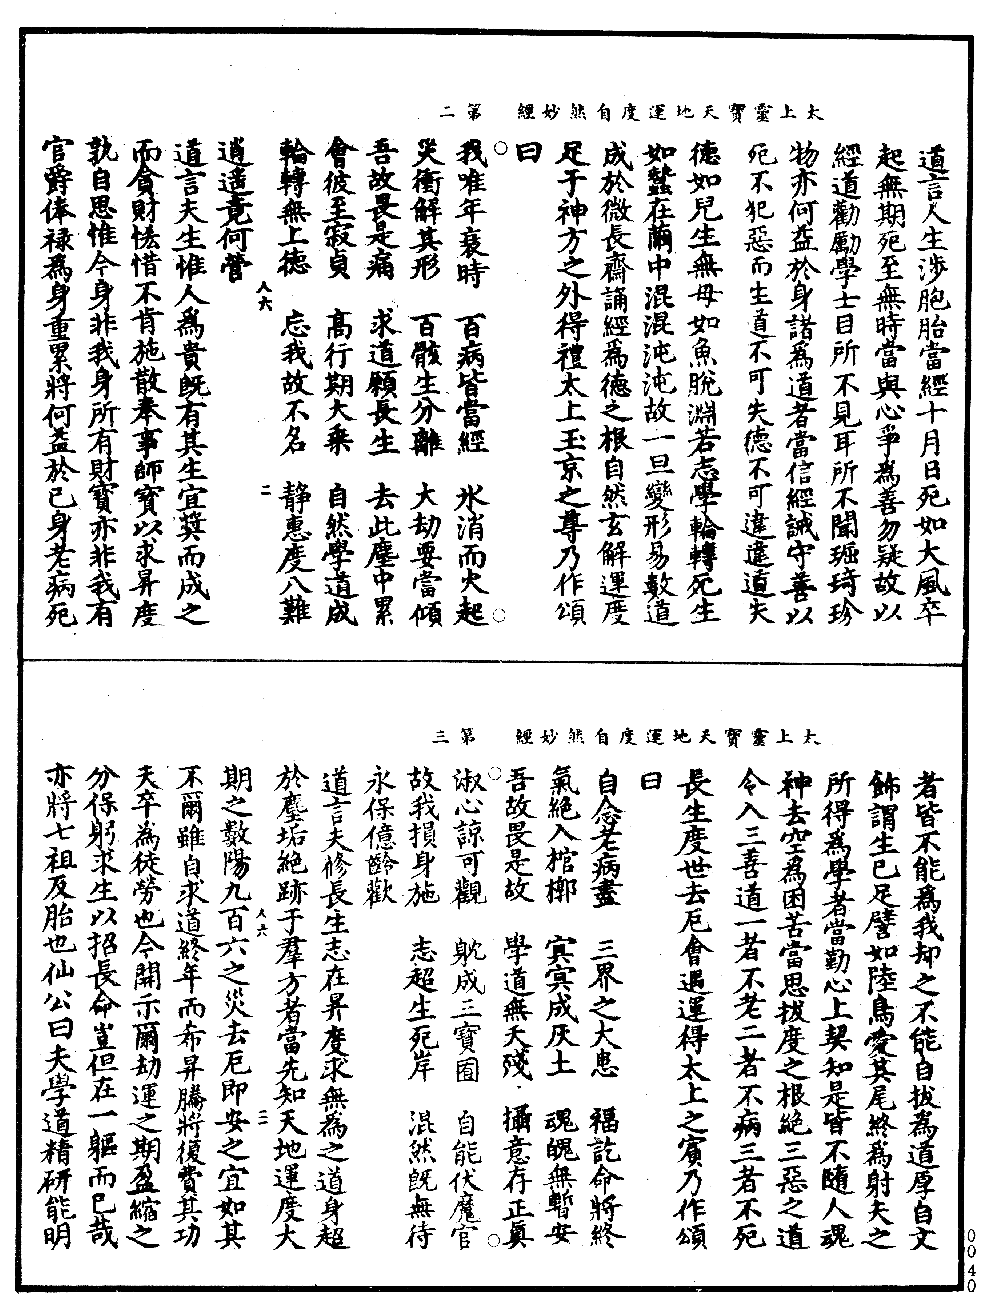 太上靈寶天地運度自然妙經　第二
道言人生涉胞胎當經十月日死如大風卒
起無期死至無時當與心爭為善勿疑故以
經道勸勵學士目所不見耳所不聞珤琦珍
物亦何益於身諸為道者當信經誡守善以
死不犯惡而生道不可失德不可違違道失
德如兒生無母如魚脫淵若志學輪轉死生
如蠶在繭中混混沌沌故一旦變形易數道
成於微長齋誦經為德之根自然玄解運度
足于神方之外得禮太上玉京之尊乃作頌
曰
我唯年衰時　百病皆當經　氷消而火起
災衝解其形　百骸生分離　大劫要當傾
吾故畏是病　求道願長生　去此塵中累
會彼至寂貞　高行期大乘　自然學道成
輪轉無上德　忘我故不名　静惠度八難
逍遥竟何營
道言夫生惟人為貴既有其生宜奘而成之
而貪財恡惜不肯施散奉事師寶以求昇度
孰自思惟今身非我身所有財寶亦非我有
官爵俸禄為身重累將何益於已身老病死
人六　二
太上靈寶天地運度自然妙經　第三
者皆不能為我却之不能自拔為道厚自文
飾謂生已足譬如陸鳥愛其尾終為射夫之
所得為學者當勤心上契知是皆不隨人魂
神去空為困苦當思拔度之根絶三惡之道
令入三善道一者不老二者不病三者不死
長生度世去厄會遇運得太上之賓乃作頌
曰
自念老病盡　三界之大患　福訖命將終
氣絶入棺槨　㝠㝠成灰土　魂魄無暫安
吾故畏是故　學道無夭殘　攝意存正真
淑心諒可觀　躭成三寶囿　自能伏魔官
故我損身施　志超生死岸　混然既無待
永保億齡歡
道言夫修長生志在昇度求無為之道身超
於塵垢絶跡于羣方者當先知天地運度大
期之數陽九百六之災去厄即安之宜如其
不爾雖自求道終年而希昇騰將復費其功
夫卒為徒勞也今開示爾劫運之期盈縮之
分保躬求生以招長命豈但在一軀而已哉
亦將七祖及胎也仙公曰夫學道精研能明
人六　三
0040